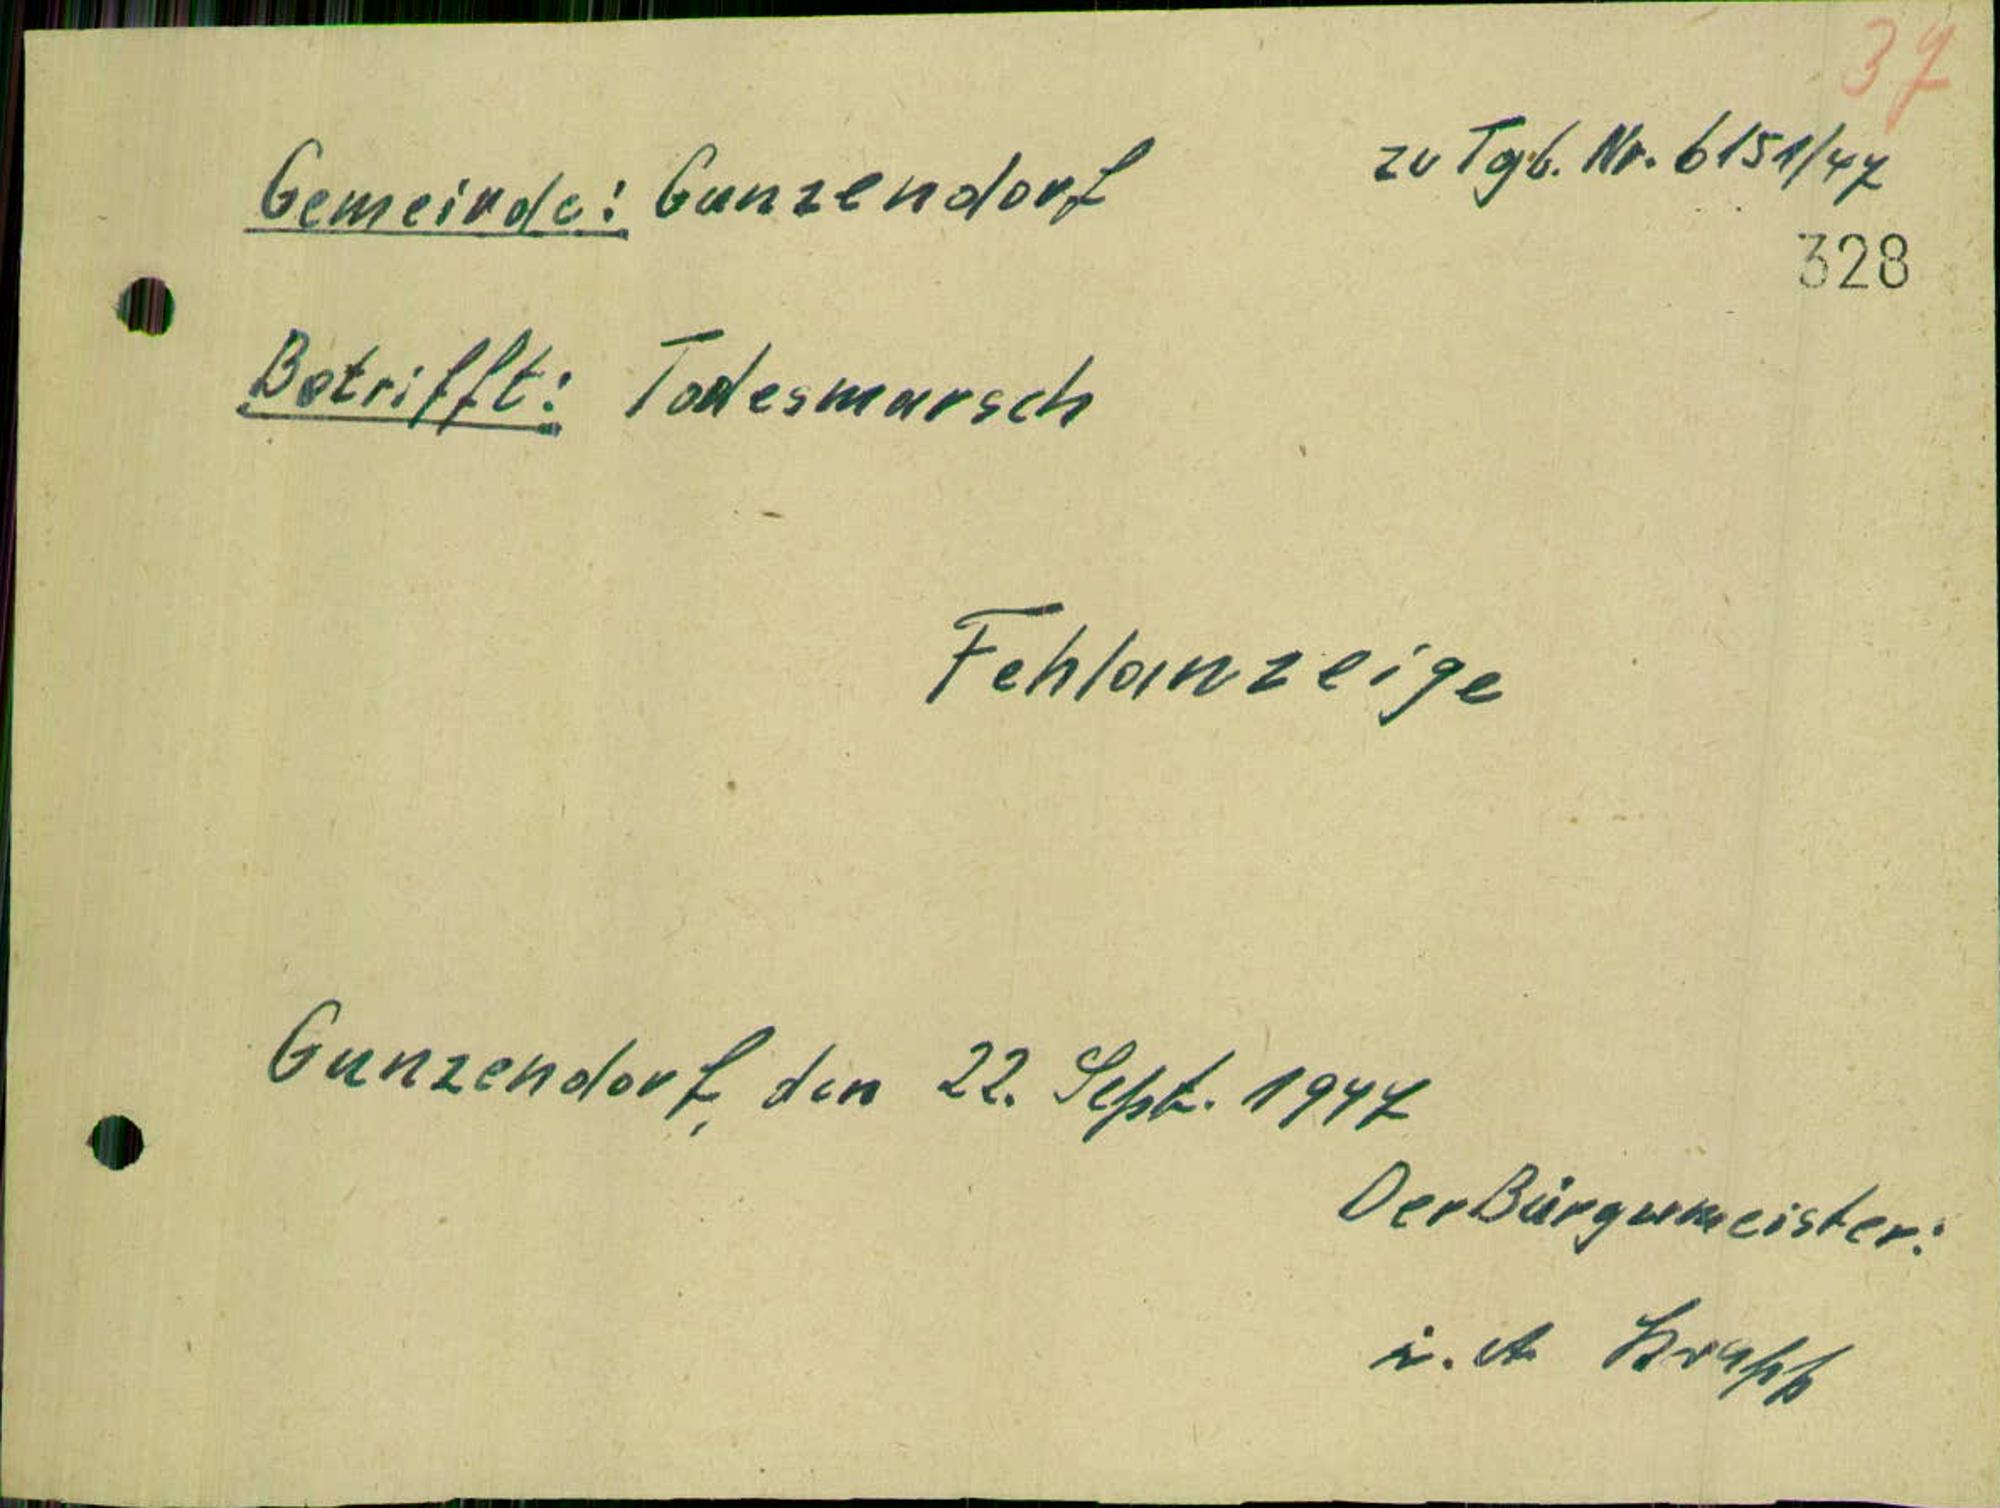 37
Gemeinde: Gunzendorf
zu Tgb. Nr. 6151/47
328
Betrifft: Todesmarsch
Fehlanzeige
Gunzendorf, den 22. Sept. 1947
Der Bürgermeister:
i. A Krapp